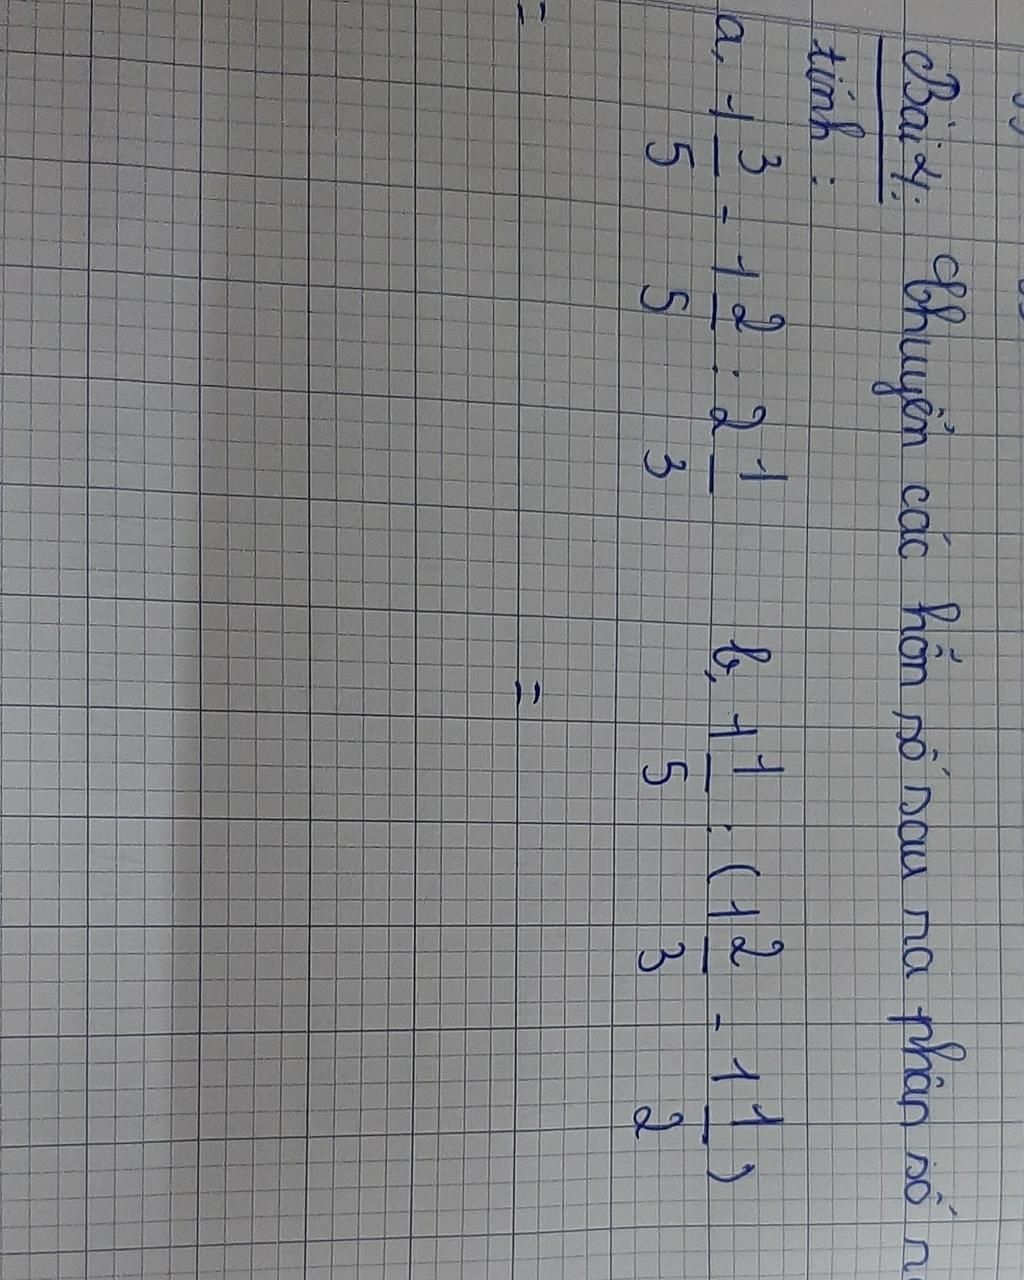 Bài 4: Chuyển các hỗn số sau ra phân số r
tính :
a, 1 3/5 - 1 2/5 : 2 1/3 b, 1 1/5 : (1 2/3 - 1 1/2)
= =